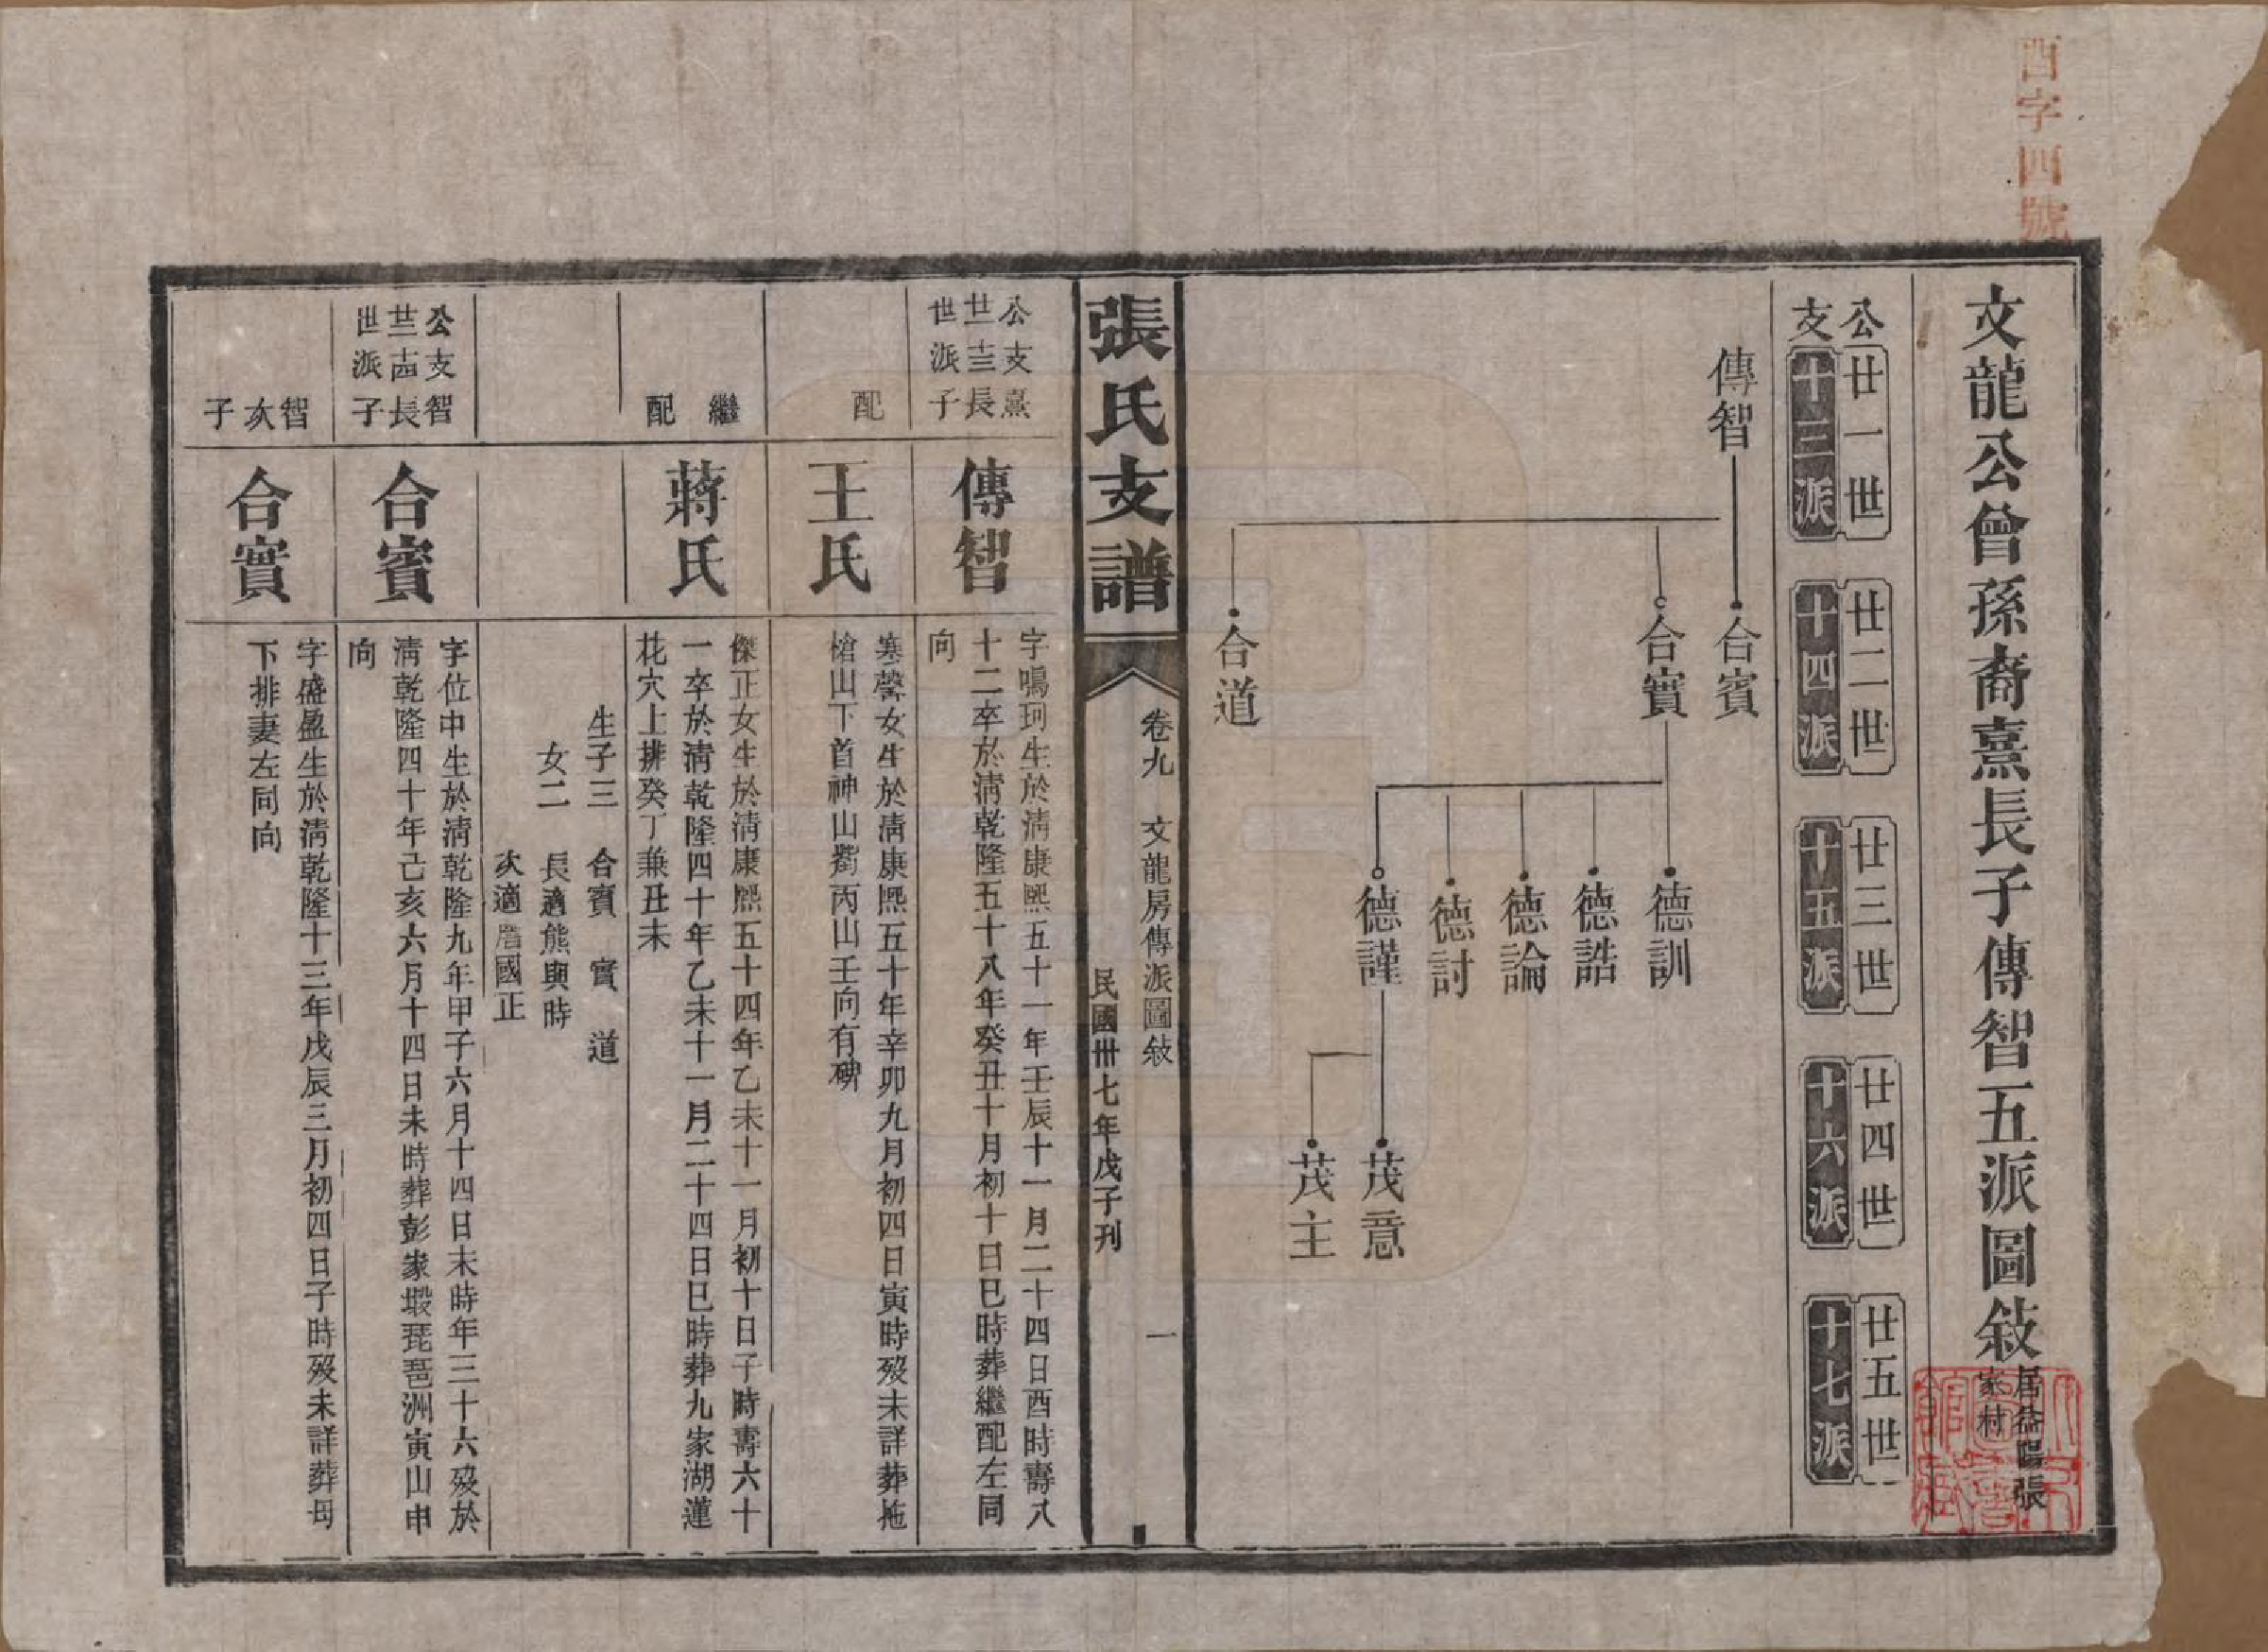 酉字四號
文龍公曾孫裔熹長子傳智五派圖敍
居益陽張
家村
公支
廿一世
十三派
廿二世
十四派
廿三世
十五派
廿四世
十六派
廿五世
十七派
傳智
合賓
合實
合道
德訓
德誥
德論
德討
德謹
茂意
茂主
張氏支譜
卷九
文龍房傳派圖敍
一
民國卅七年戊子刊
公支熹
廿一十三長
世派子
傳智
字鳴珂生於淸康熙五十一年壬辰十一月二十四日酉時壽八
十二卒於淸乾隆五十八年癸丑十月初十日巳時葬繼配左同
向
配
王氏
寒馨女生於淸康熙五十年辛卯九月初四日寅時歿未詳葬拖
槍山下首神山㘭丙山壬向有碑
繼配
蔣氏
傑正女生於淸康熙五十四年乙未十一月初十日子時壽六十
一卒於淸乾隆四十年乙未十一月二十四日巳時葬九家湖蓮
花穴上排癸丁兼丑未
生子三 合賓 實 道
女二 長適熊興時
次適詹國正
公支智
廿二十四長
世派子
合賓
字位中生於淸乾隆九年甲子六月十四日未時年三十六歿於
淸乾隆四十年己亥六月十四日未時葬彭家塅琵琶洲寅山申
向
智次子
合實
字盛盈生於淸乾隆十三年戊辰三月初四日子時歿未詳葬母
下排妻左同向